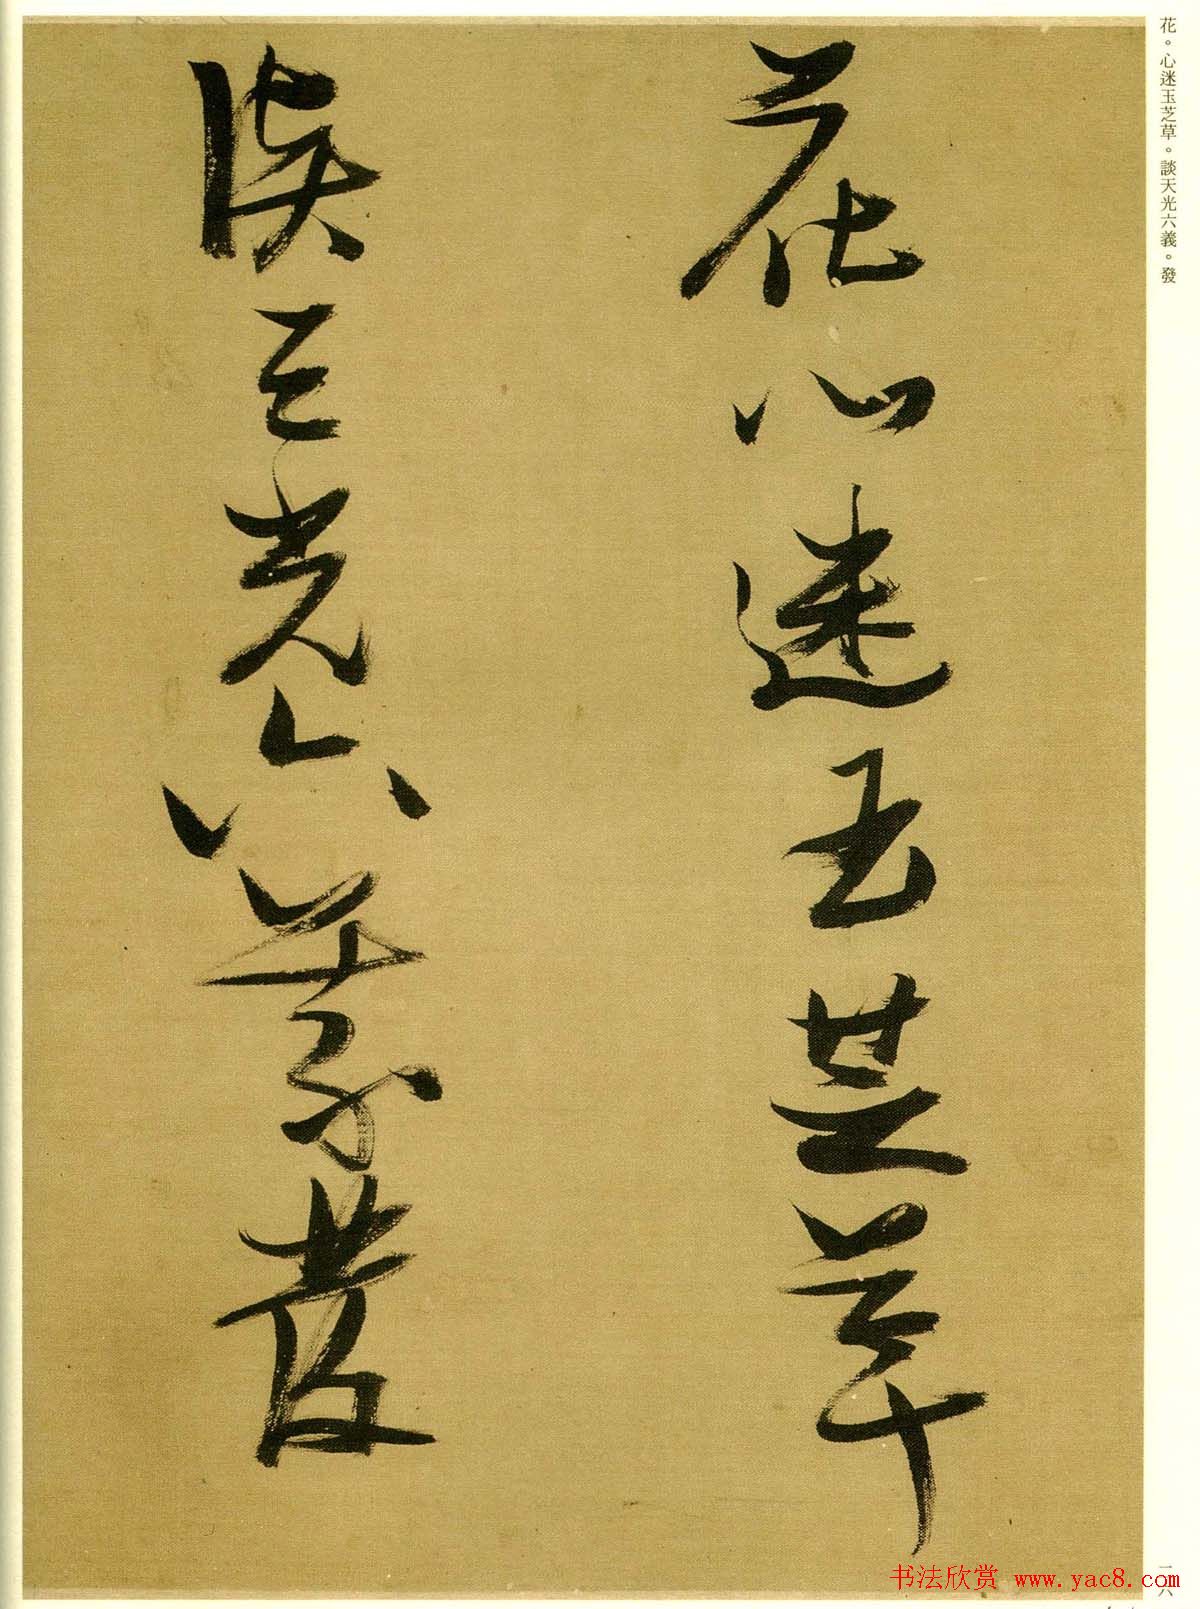 花。心迷玉芝草。談天光六義。發
花心迷玉芝草
談天光六義發
书法欣赏 www.yac8.com